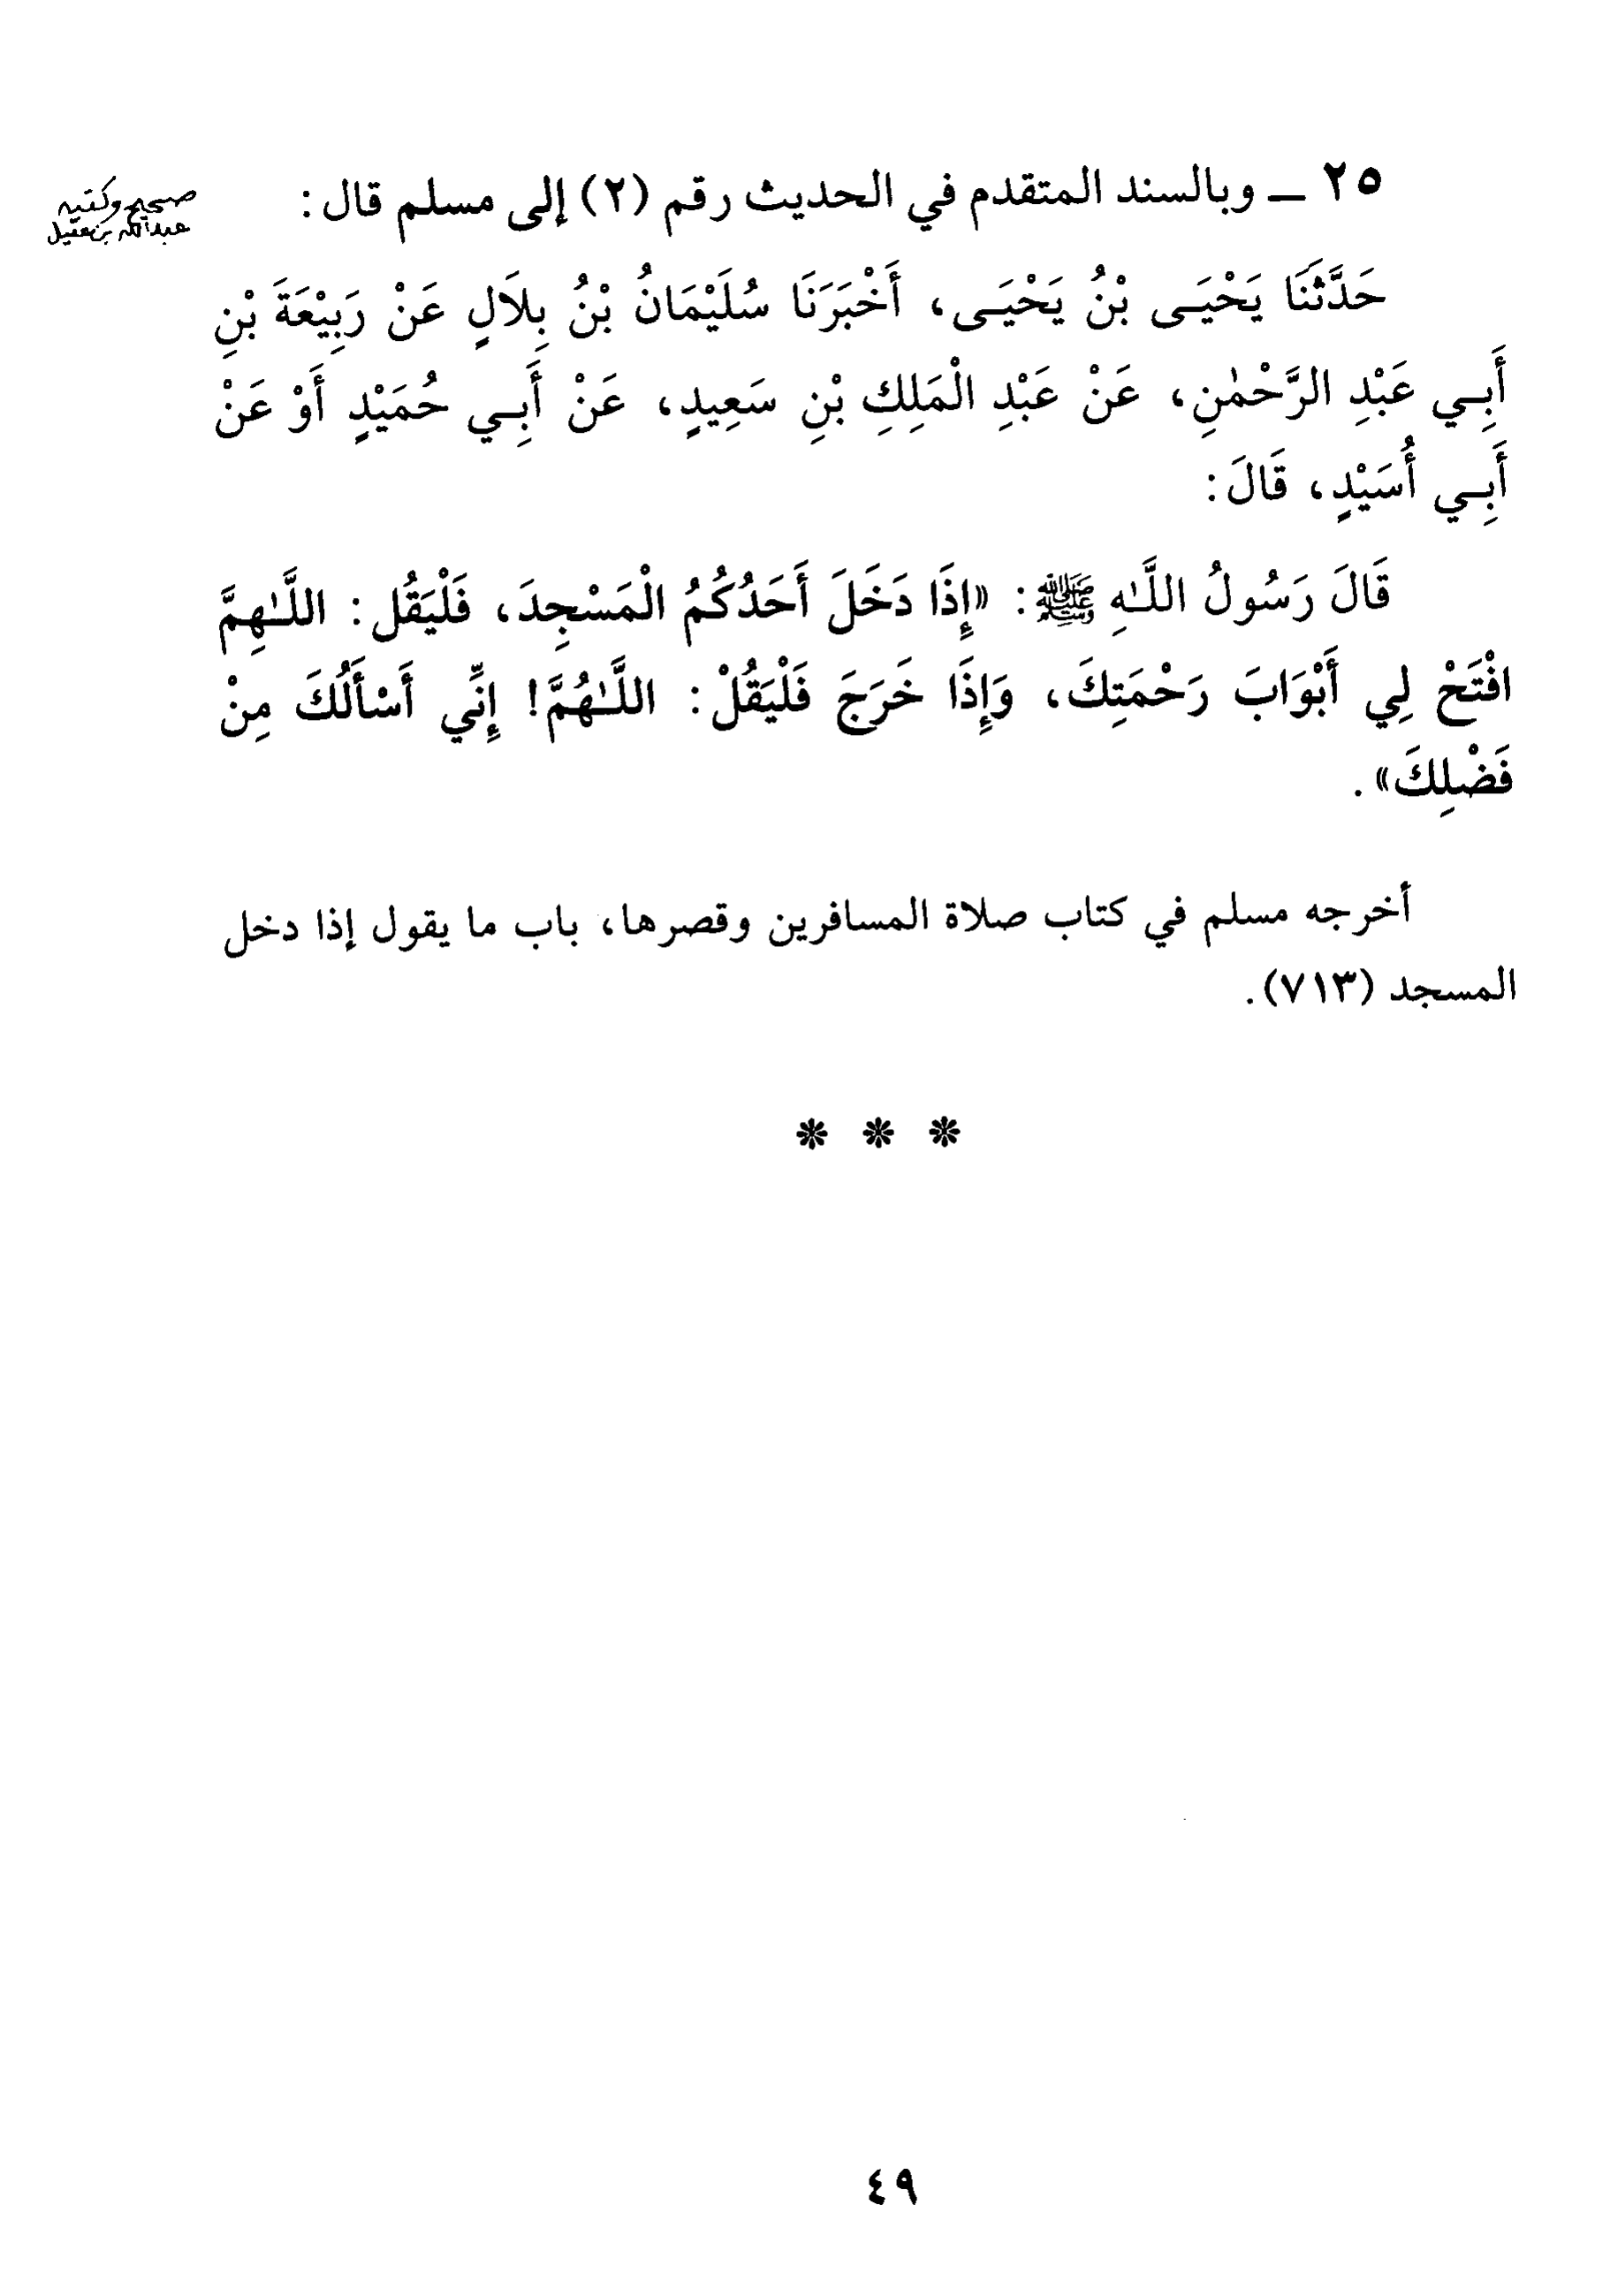 ٢٥ — وبالسند المتقدم في الحديث رقم (٢) إلى مسلم قال:
صحيح وكتبه
عبدالله بن عقيل
حَدَّثَنَا يَحْيَى بْنُ يَحْيَى، أَخْبَرَنَا سُلَيْمَانُ بْنُ بِلَالٍ عَنْ رَبِيْعَةَ بْنِ
أَبِي عَبْدِ الرَّحْمٰنِ، عَنْ عَبْدِ الْمَلِكِ بْنِ سَعِيدٍ، عَنْ أَبِي حُمَيْدٍ أَوْ عَنْ
أَبِي أُسَيْدٍ، قَالَ:
قَالَ رَسُولُ اللَّـٰهِ ﷺ: «إِذَا دَخَلَ أَحَدُكُمُ الْمَسْجِدَ، فَلْيَقُل: اللَّـٰهِمَّ
افْتَحْ لِي أَبْوَابَ رَحْمَتِكَ، وَإِذَا خَرَجَ فَلْيَقُلْ: اللَّـٰهُمَّ! إِنِّي أَسْأَلُكَ مِنْ
فَضْلِكَ».
أخرجه مسلم في كتاب صلاة المسافرين وقصرها، باب ما يقول إذا دخل
المسجد (٧١٣).
* * *
٤٩